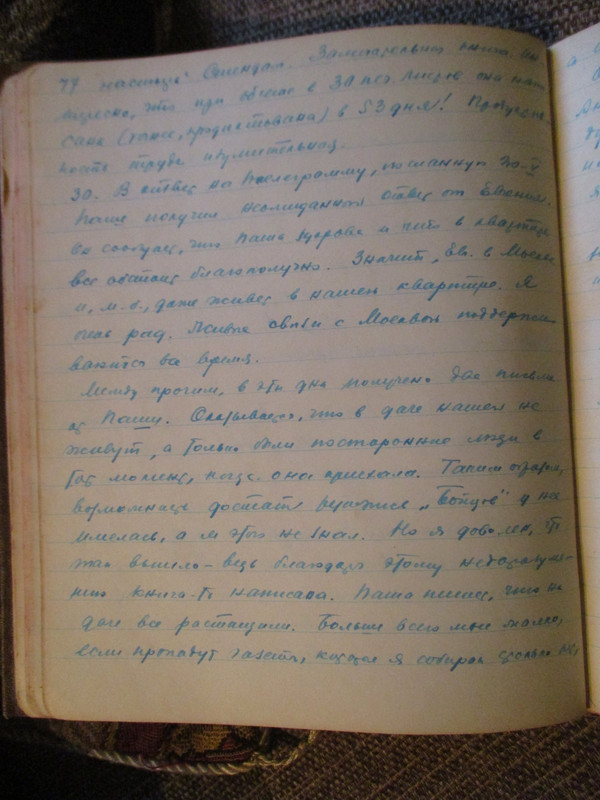 77 настице" Стендаля. Замечательная книга. Ин
тересно, что при объеме в 30 печ. листов она напи
сана (точнее, продиктована) в 53 дня! Производитель-
ность труда изумительная.
30. В ответ на телеграмму, посланную 30.V
Паше получил неожиданный ответ от Евгения.
Он сообщает, что Паша здорова и что в квартире
все обстоит благополучно. Значит, Евг. в Москве
и, м.б., даже живет в нашей квартире. Я
очень рад. Живые связи с Москвой поддержи
ваются все время.
Между прочим, в эти дни получено два письма
от Паши. Оказывается, что в даче нашей не
живут, а только были посторонние люди в
тот момент, когда она приехала. Таким образом,
возможность достать рукопись „Бойцов" у нас
имелась, а я этого не знал. Но я доволен, что
так вышло – ведь благодаря этому недоразуме-
нию книга-то написана. Паша пишет, что на
даче все растащили. Больше всего мне жалко,
если пропадут газеты, которые я собирал столько лет,